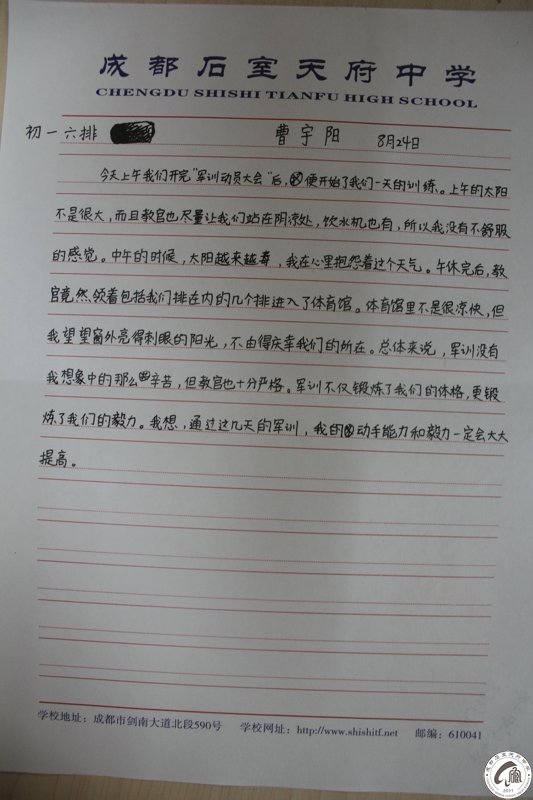 成都石室天府中学
CHENGDU SHISHI TIANFU HIGH SCHOOL
初一六排 曹宇阳 8月24日
今天上午我们开完“军训动员大会”后，便开始了我们一天的训练。上午的太阳
不是很大，而且教官也尽量让我们站在阴凉处，饮水机也有，所以我没有不舒服
的感觉。中午的时候，太阳越来越毒，我在心里抱怨着这个天气。午休完后，教
官竟然领着包括我们排在内的几个排进入了体育馆。体育馆里不是很凉快，但
我望望窗外亮得刺眼的阳光，不由得庆幸我们的所在。总体来说，军训没有
我想象中的那么辛苦，但教官也十分严格。军训不仅锻炼了我们的体格，更锻
炼了我们的毅力。我想，通过这几天的军训，我的动手能力和毅力一定会大大
提高。
学校地址：成都市剑南大道北段590号 学校网址：http://www.shishitf.net 邮编：610041
2011